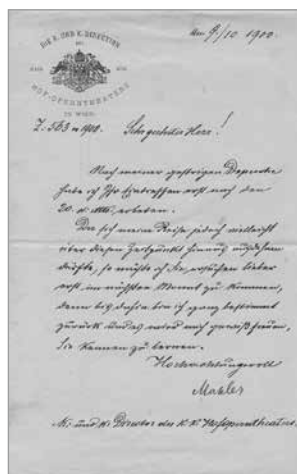 DIE K. UND K. DIRECTION
DES
HOF-OPERNTHEATERS
IN WIEN.
am 9./10 1900.
Z. 563 1900. Sehr geehrter Herr!
Nach meiner gestrigen Depesche
habe ich Ihr Eintreffen erst nach dem
20. d. erbeten.
Da sich meine Reise jedoch vielleicht
über diesen Zeitpunkt hinaus ausdehnen
dürfte, so möchte ich Sie ersuchen lieber
erst im nächsten Monat zu kommen,
denn bis dahin bin ich ganz bestimmt
zurück und es wird mich gewiß freuen,
Sie kennen zu lernen.
Hochachtungsvoll
Mahler
k. und k. Director des k. k. Hofoperntheaters.